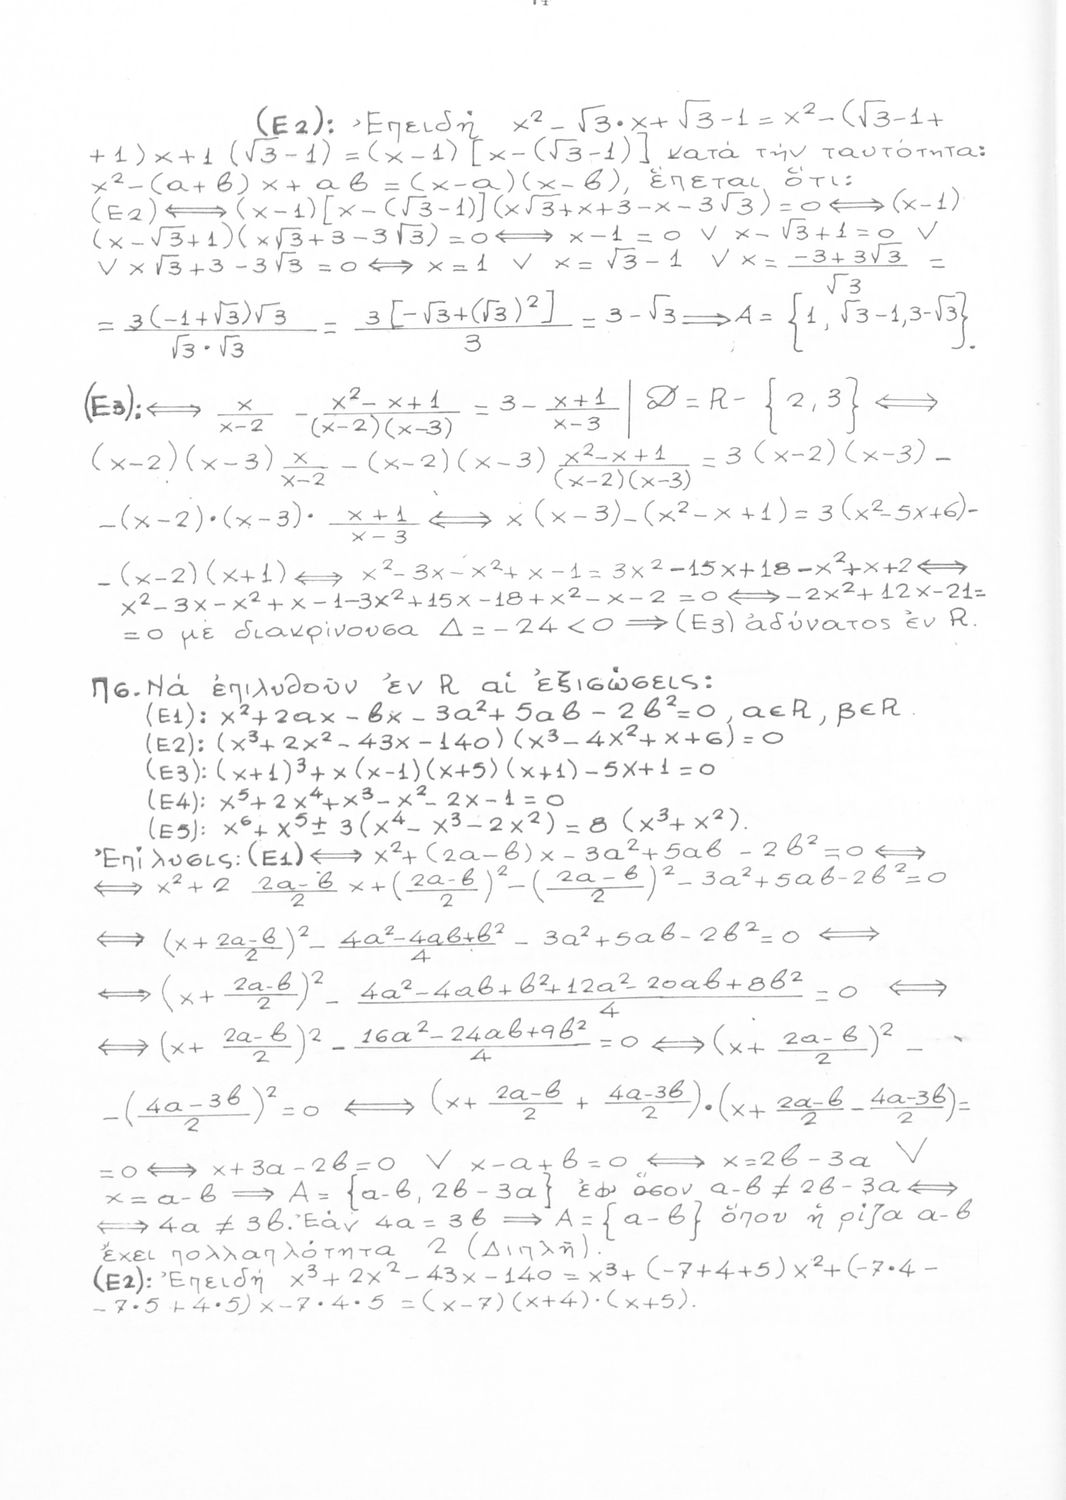 (E2): Ἐπειδή x² - √3·x + √3 - 1 = x² - (√3 - 1 +
+ 1)x + 1(√3 - 1) = (x - 1)[x - (√3 - 1)] κατά τήν ταυτότητα:
x² - (α + β)x + αβ = (x - α)(x - β), ἕπεται ὅτι:
(E2) ⟺ (x - 1)[x - (√3 - 1)](x√3 + x + 3 - x - 3√3) = 0 ⟺ (x - 1)
(x - √3 + 1)(x√3 + 3 - 3√3) = 0 ⟺ x - 1 = 0 ∨ x - √3 + 1 = 0 ∨
∨ x√3 + 3 - 3√3 = 0 ⟺ x = 1 ∨ x = √3 - 1 ∨ x = (-3 + 3√3)/√3 =
= 3(-1 + √3)√3/(√3·√3) = 3[-√3 + (√3)²]/3 = 3 - √3 ⟹ A = {1, √3 - 1, 3 - √3}.
(E3): ⟺ x/(x - 2) - (x² - x + 1)/((x - 2)(x - 3)) = 3 - (x + 1)/(x - 3) | 𝒟 = R - {2, 3} ⟺
(x - 2)(x - 3) x/(x - 2) - (x - 2)(x - 3) (x² - x + 1)/((x - 2)(x - 3)) = 3(x - 2)(x - 3) -
- (x - 2)·(x - 3)· (x + 1)/(x - 3) ⟺ x(x - 3) - (x² - x + 1) = 3(x² - 5x + 6) -
- (x - 2)(x + 1) ⟺ x² - 3x - x² + x - 1 = 3x² - 15x + 18 - x² + x + 2 ⟺
x² - 3x - x² + x - 1 - 3x² + 15x - 18 + x² - x - 2 = 0 ⟺ -2x² + 12x - 21 =
= 0 μέ διακρίνουσα Δ = -24 < 0 ⟹ (E3) ἀδύνατος ἐν R.
Π6. Νά ἐπιλυθοῦν ἐν R αἱ ἐξισώσεις:
(E1): x² + 2αx - βx - 3α² + 5αβ - 2β² = 0, α∈R, β∈R.
(E2): (x³ + 2x² - 43x - 140)(x³ - 4x² + x + 6) = 0
(E3): (x + 1)³ + x(x - 1)(x + 5)(x + 1) - 5x + 1 = 0
(E4): x⁵ + 2x⁴ + x³ - x² - 2x - 1 = 0
(E5): x⁶ + x⁵ ± 3(x⁴ - x³ - 2x²) = 8(x³ + x²).
Ἐπίλυσις: (E1) ⟺ x² + (2α - β)x - 3α² + 5αβ - 2β² = 0 ⟺
⟺ x² + 2 (2α - β)/2 x + ((2α - β)/2)² - ((2α - β)/2)² - 3α² + 5αβ - 2β² = 0
⟺ (x + (2α - β)/2)² - (4α² - 4αβ + β²)/4 - 3α² + 5αβ - 2β² = 0 ⟺
⟺ (x + (2α - β)/2)² - (4α² - 4αβ + β² + 12α² - 20αβ + 8β²)/4 = 0 ⟺
⟺ (x + (2α - β)/2)² - (16α² - 24αβ + 9β²)/4 = 0 ⟺ (x + (2α - β)/2)² -
- ((4α - 3β)/2)² = 0 ⟺ (x + (2α - β)/2 + (4α - 3β)/2)·(x + (2α - β)/2 - (4α - 3β)/2) =
= 0 ⟺ x + 3α - 2β = 0 ∨ x - α + β = 0 ⟺ x = 2β - 3α ∨
x = α - β ⟹ A = {α - β, 2β - 3α} ἐφ ὅσον α - β ≠ 2β - 3α ⟺
⟺ 4α ≠ 3β. Ἐάν 4α = 3β ⟹ A = {α - β} ὅπου ἡ ρίζα α - β
ἔχει πολλαπλότητα 2 (Διπλῆ).
(E2): Ἐπειδή x³ + 2x² - 43x - 140 = x³ + (-7 + 4 + 5)x² + (-7·4 -
- 7·5 + 4·5)x - 7·4·5 = (x - 7)(x + 4)·(x + 5).